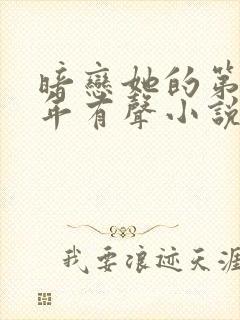 暗戀她的第
年有聲小說
我要浪迹天涯